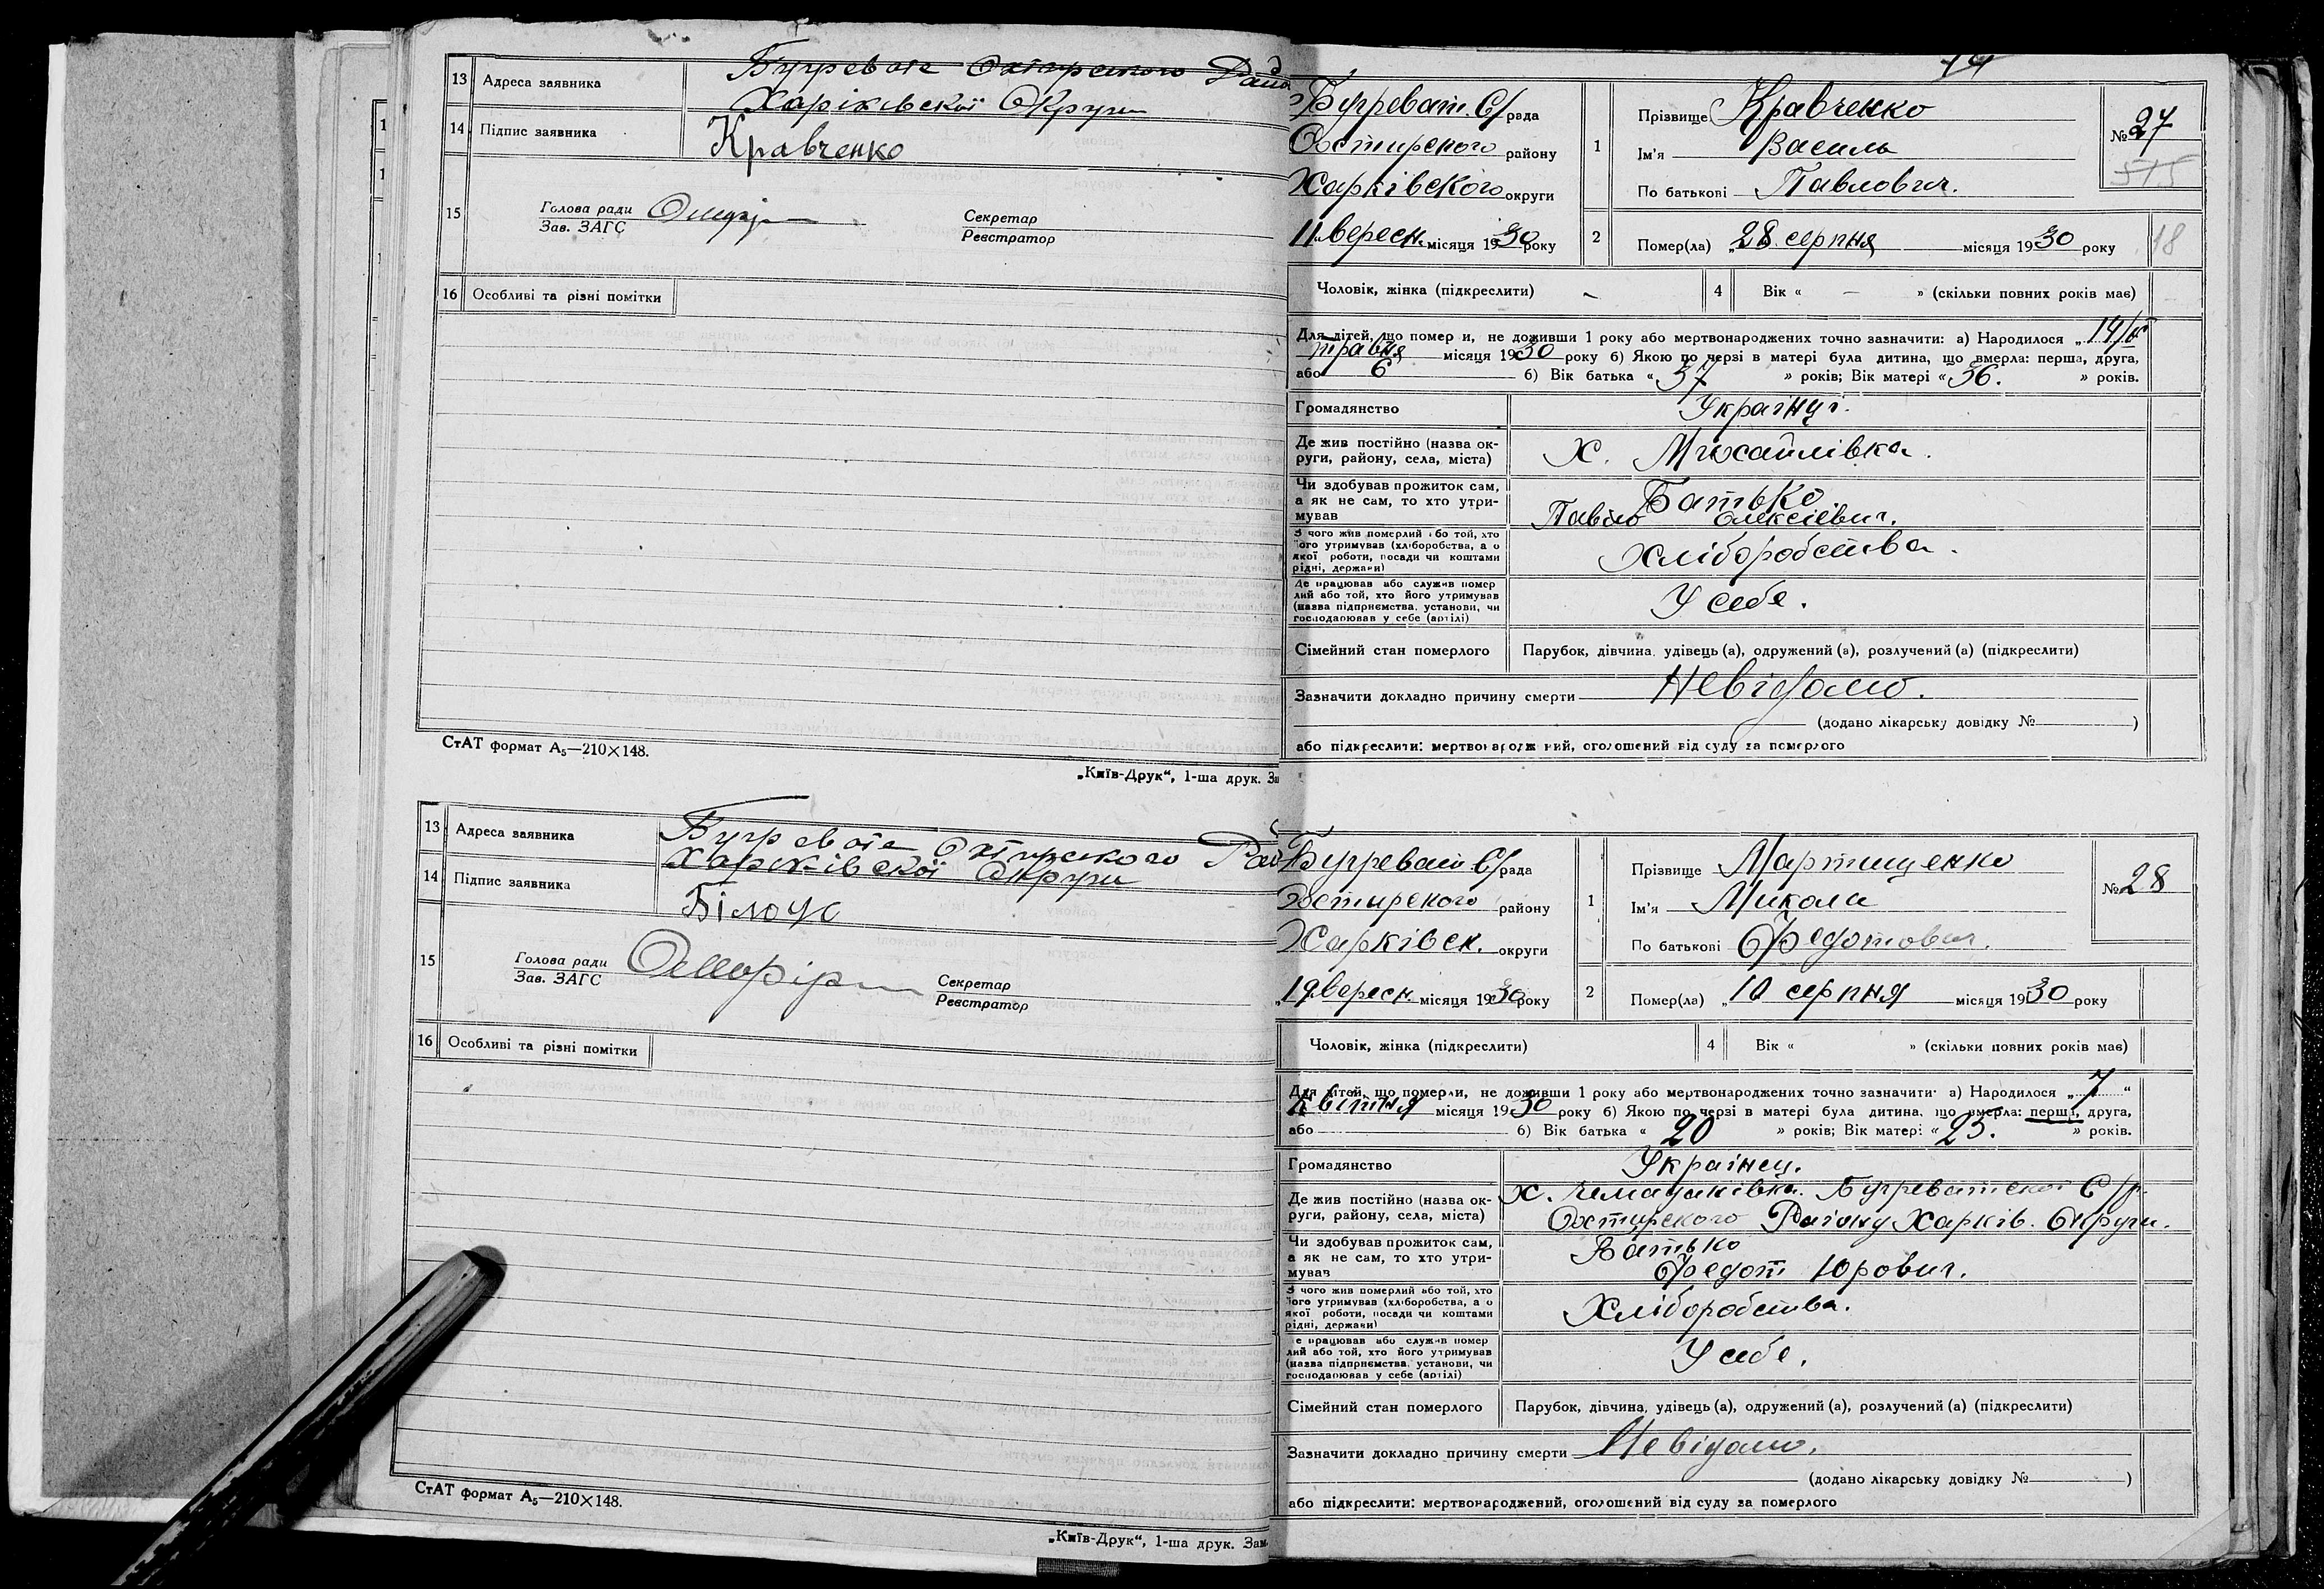 13 Адреса заявника Бугревате Охтирського Рай
Харіківскої Округи
14 Підпис заявника Кравченко
15 Голова ради Секретар
Зав. ЗАГС Реєстратор
16 Особливі та різні помітки
СтАТ формат А5—210×148.
„Київ-Друк“, 1-ша друк. За
13 Адреса заявника Бугревате Охтирского Рай
Харіківскої Округи
14 Підпис заявника Білоус
15 Голова ради Секретар
Зав. ЗАГС Реєстратор
16 Особливі та різні помітки
СтАТ формат А5—210×148.
„Київ-Друк“, 1-ша друк. Зам.
Бугреват. С/рада
Охтирского району
Харківского округи
11 вересн. місяця 1930 року
1 Прізвище Кравченко
Ім'я Василь
По батькові Павлович.
№ 27
515
2 Помер(ла) „28 серпня місяця 1930 року 18
Чоловік, жінка (підкреслити) 4 Вік « — » (скільки повних років має)
Для дітей, що померли, не доживши 1 року або мертвонароджених точно зазначити: а) Народилося „14/V
травня місяця 1930 року б) Якою по черзі в матері була дитина, що вмерла: перша, друга,
або 6 б) Вік батька « 37 » років; Вік матері « 36. » років.
Громадянство Українці.
Де жив постійно (назва ок-
руги, району, села, міста) Х. Михайлівка.
Чи здобував прожиток сам,
а як не сам, то хто утри-
мував Батько
Павло Олексієвич.
З чого жив померлий або той, хто
його утримував (хліборобства, а о
якої роботи, посади чи коштами
рідні, держави) Хліборобства.
Де працював або служив помер
лий або той, хто його утримував
(назва підприємства, установи, чи
господарював у себе (артілі) У себе.
Сімейний стан померлого Парубок, дівчина, удівець (а), одружений (а), розлучений (а) (підкреслити)
Зазначити докладно причину смерти Невідомо.
(додано лікарську довідку № )
або підкреслити: мертвонароджений, оголошений від суду за померлого
Бугреват. С/рада
Охтирского району
Харківск. округи
„19 вересн. місяця 1930 року
1 Прізвище Мартищенко
Ім'я Микола
По батькові Федотович.
№ 28
2 Помер(ла) „10 серпня місяця 1930 року
Чоловік, жінка (підкреслити) 4 Вік « » (скільки повних років має)
Для дітей, що померли, не доживши 1 року або мертвонароджених точно зазначити: а) Народилося „ 7 “
квітня місяця 1930 року б) Якою по черзі в матері була дитина, що вмерла: перша, друга,
або б) Вік батька « 20 » років; Вік матері « 25. » років.
Громадянство Українец.
Де жив постійно (назва ок-
руги, району, села, міста) Х. Бугреватскої С/р.
Охтирского Району Харків. Округи.
Чи здобував прожиток сам,
а як не сам, то хто утри-
мував Батько
Федот Юрович.
З чого жив померлий або той, хто
його утримував (хліборобства, а о
якої роботи, посади чи коштами
рідні, держави) Хліборобства.
Де працював або служив помер
лий або той, хто його утримував
(назва підприємства, установи, чи
господарював у себе (артілі) У себе.
Сімейний стан померлого Парубок, дівчина, удівець (а), одружений (а), розлучений (а) (підкреслити)
Зазначити докладно причину смерти Невідомо.
(додано лікарську довідку № )
або підкреслити: мертвонароджений, оголошений від суду за померлого